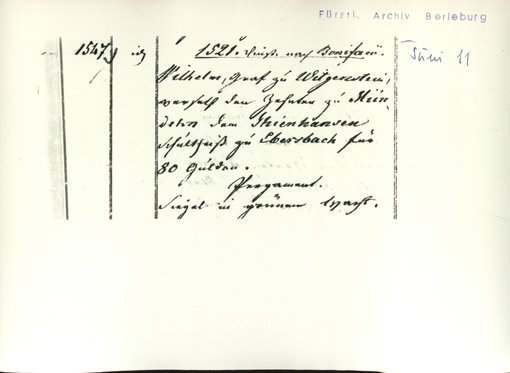 Fürstl. Archiv Berleburg
1547. 1521. Dinst. nach Bonifacii. Juni 11
Wilhelm, Graf zu Witgenstein,
versetzt den Zehnten zu
dem Thienhansen
Schultheiß zu Ebersbach für
80 Gulden.
Pergament.
Siegel in grünem Wachs.